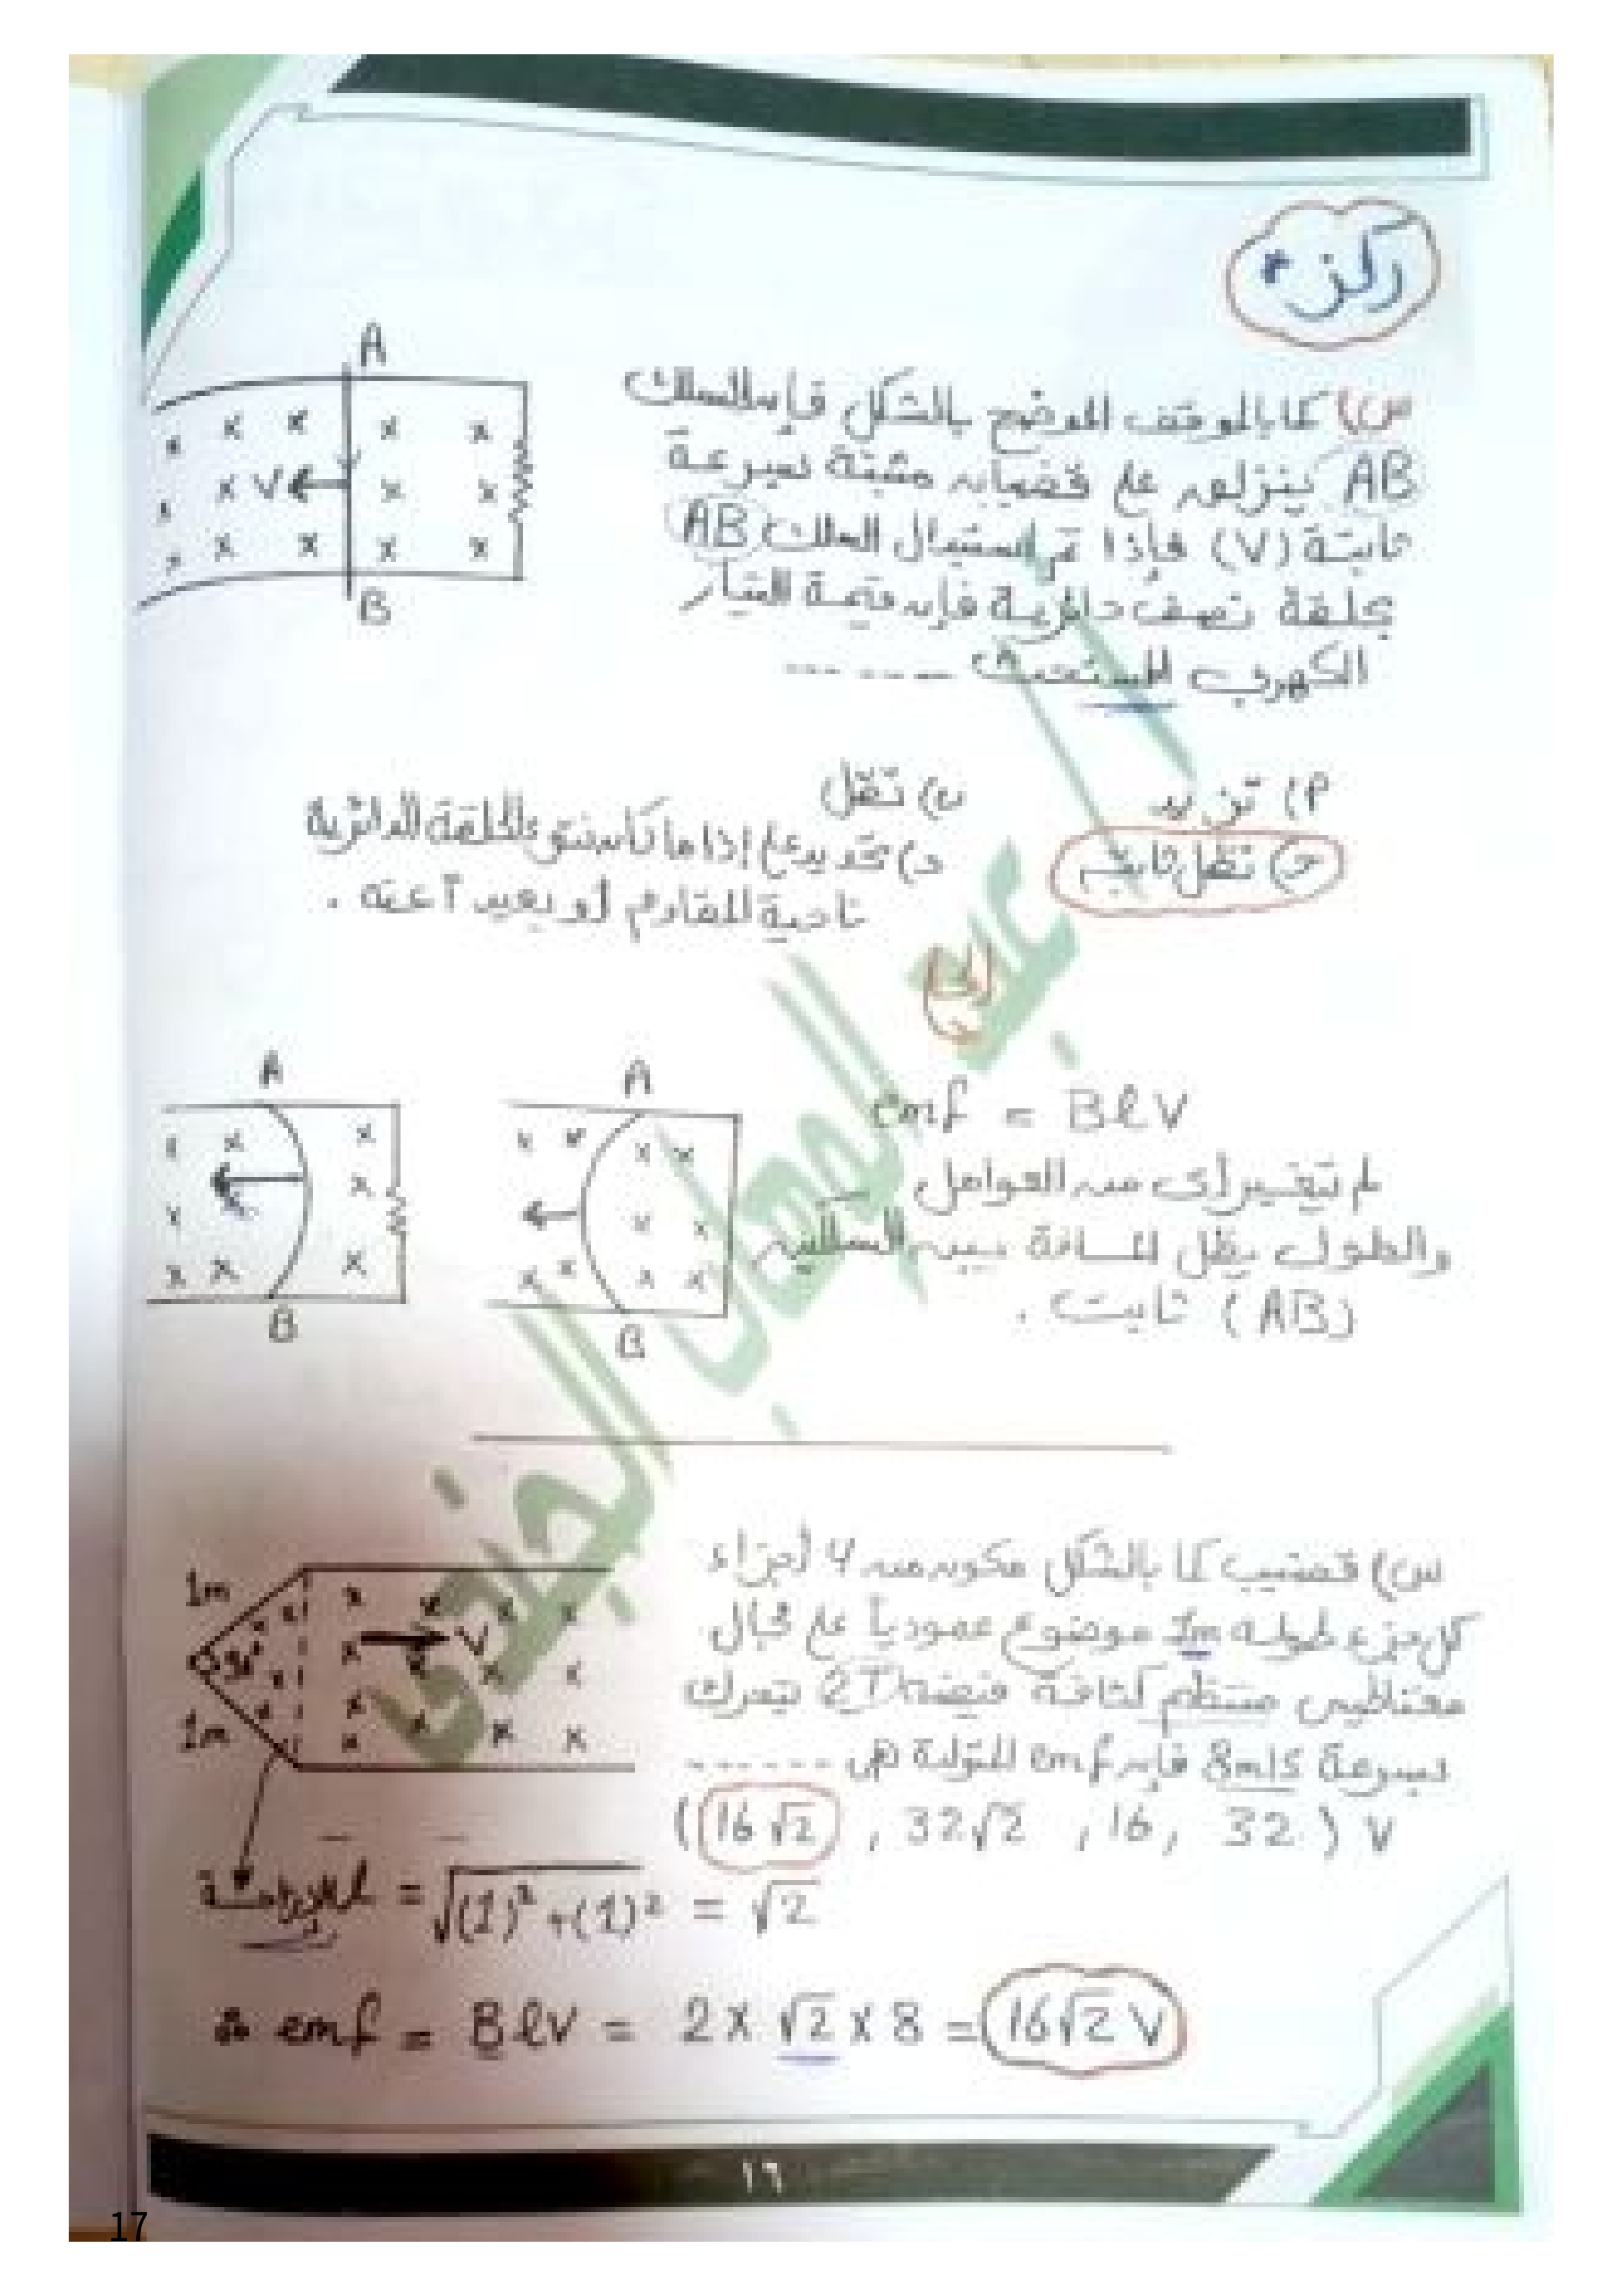 ركز
A
س) كما بالموقف الموضح بالشكل فإن السلك
AB ينزلق على قضبان مثبتة بسرعة
V
ثابتة (V) فإذا تم استبدال السلك AB
B
بحلقة نصف دائرية فإن قيمة التيار
الكهربي المستحث ------
أ) تزيد
ب) تقل
ج) تظل ثابتة
د) تحديد على إذا ما كان نتوء الحلقة الدائرية
ناحية المقاوم أو بعيداً عنه .
الحل
A
A
emf = BlV
لم تتغير أي من العوامل
والطول يظل المسافة بين السلكين
(AB) ثابت .
B
B
س) قضيب كما بالشكل مكون من 4 أجزاء
1m
كل جزء طوله 1m موضوع عمودياً على مجال
V
مغناطيسي منتظم كثافة فيضه 2T يتحرك
1m
بسرعة 8m/s فإن emf المتولدة هي ------
(16√2 , 32√2 , 16, 32) V
= √(1)² + (1)² = √2
∴ emf = BlV = 2 × √2 × 8 = 16√2 V
١٦
17